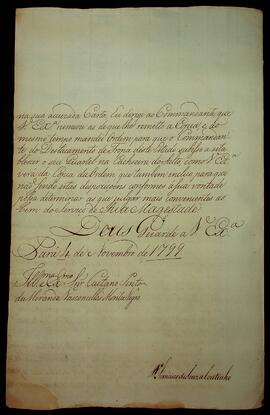 na sua accuzada Carta, Eu dirijo ao Commandante que
V. Ex.ª nomeou as de que lhe remetto a Copia; e do
mesmo tempo mandei Ordem para que o Commandan-
te do Destacamento de Tropa deste Estado subisse a esta
belecer o seu Quartel na Cachoeira do Salto, como V. Ex.ª
verá da Copia da Ordem que tambem incluo, para que
não sendo estas dispozicoens conformes á sua vontade
possa determinar as que julgar mais convenientes ao
bem do Serviço de Sua Magestade.
Deos Guarde a V. Ex.ª
Pará 4 de Novembro de 1799
Ill.mo e Ex.mo Snr. Caetano Pinto
de Miranda Montenegro
D. Francisco de Souza Coutinho